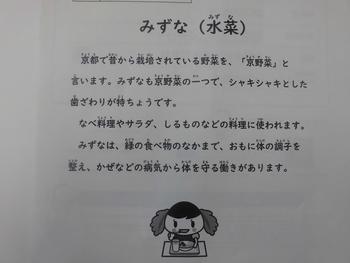 みずな（水菜）
京都で昔から栽培されている野菜を、「京野菜」と
言います。みずなも京野菜の一つで、シャキシャキとした
歯ざわりが特ちょうです。
なべ料理やサラダ、しるものなどの料理に使われます。
みずなは、緑の食べ物のなかまで、おもに体の調子を
整え、かぜなどの病気から体を守る働きがあります。